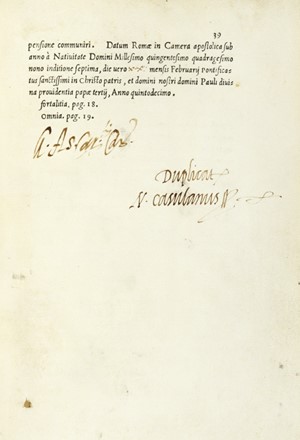 39
pensione communiri. Datum Romæ in Camera apostolica sub
anno à Natiuitate Domini Millesimo quingentesimo quadragesimo
nono inditione septima, die uero mensis Februarij Pontificas
tus sanctissimi in Christo patris, et domini nostri domini Pauli diui
na prouidentia papæ tertij, Anno quintodecimo.
fortalitia, pag. 18.
Omnia. pag. 19.
Duplicat
N. casulanus N.